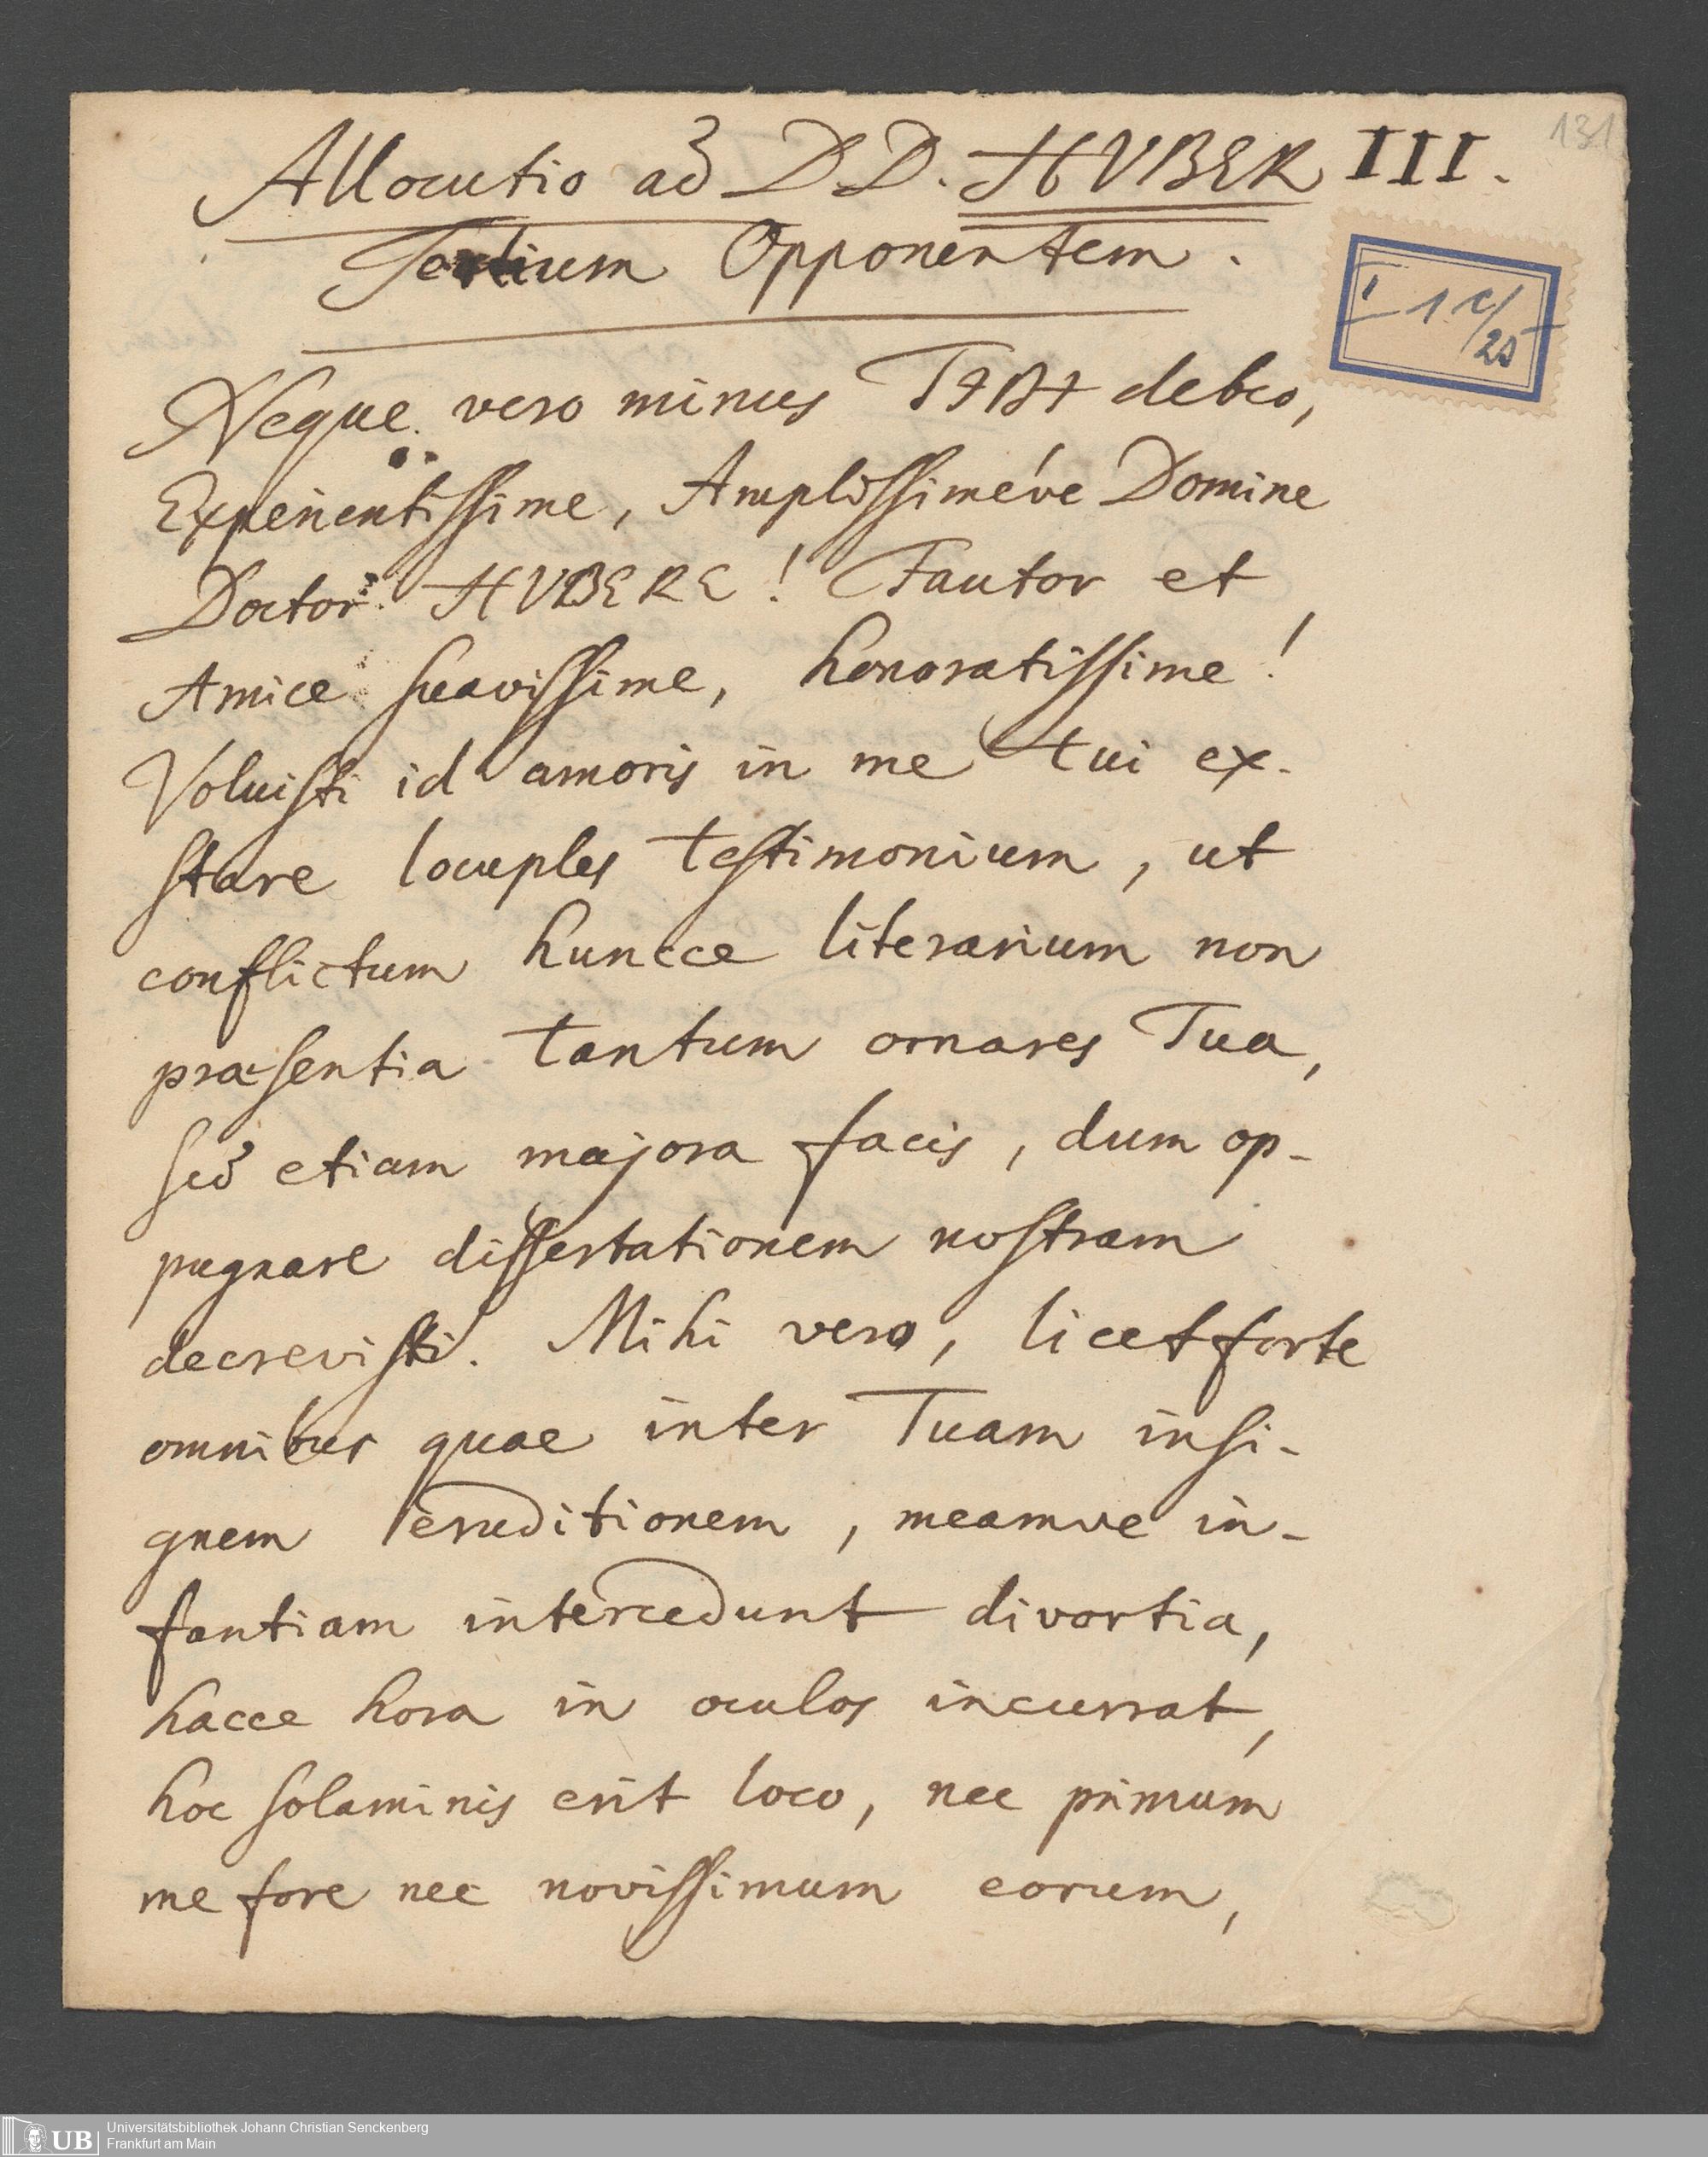 131
Allocutio ad D D. HVBER III.
Tertium Opponentem.
I 1 c/
25
Neque vero minus TIBI debeo,
Experientissime, Amplissiméve Domine
Doctor HVBERE! Fautor et
Amice suavissime, honoratissime!
Voluisti id amoris in me tui ex-
stare locuples testimonium, ut
conflictum huncce literarium non
praesentia tantum ornares Tua,
sed etiam majora facis, dum op-
pugnare dissertationem nostram
decrevisti. Mihi vero, licet forte
omnibus quae inter Tuam insi-
gnem eruditionem, meamve in-
fantiam intercedunt divortia,
hacce hora in oculos incurrat,
hoc solaminis erit loco, nec primum
me fore nec novissimum eorum,
UB
Universitätsbibliothek Johann Christian Senckenberg
Frankfurt am Main